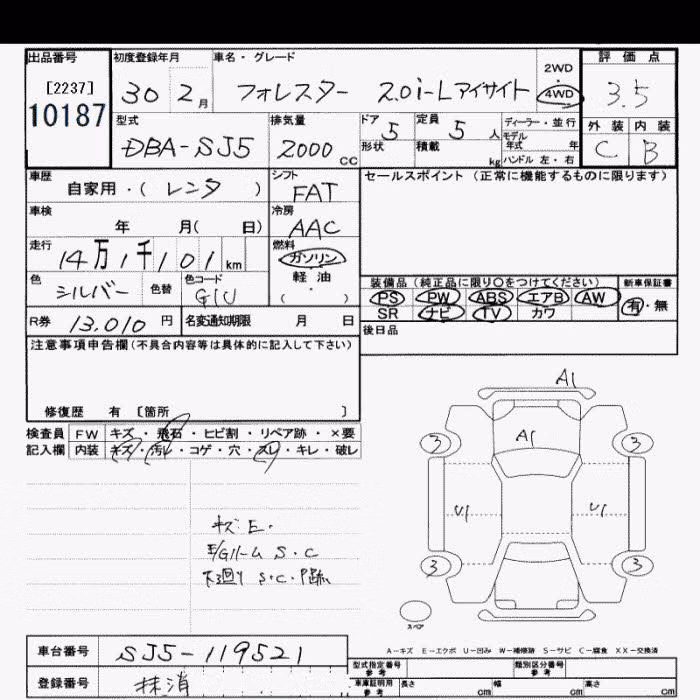 出品番号 初度登録年月 車名・グレード 評価点
[2237] 10187
30 2月 フォレスター 2.0i-Lアイサイト 2WD 4WD 3.5
型式 排気量 ドア 定員 ディーラー・並行 外装 内装
DBA-SJ5 2000cc 5 5人 モデル年式 年 C B
形状 積載 kg ハンドル 左・右
車歴 シフト セールスポイント(正常に機能するものに限ります)
自家用・(レンタ) FAT
車検 冷房
年 月( 日) AAC
走行 燃料
14万1千101km ガソリン
軽・油
( )
色 色替 色コード 装備品(純正品に限り○をつけてください) 新車保証書
シルバー G1U PS PW ABS エアB AW 有・無
SR ナビ TV カワ
R券 13,010円 名変通知期限 月 日 後日品
注意事項申告欄(不具合内容等は具体的に記入して下さい)
修復歴 有 [箇所 ]
検査員 FW キズ・飛石・ヒビ割・リペア跡・×要
記入欄 内装 キズ・汚れ・コゲ・穴・スレ・キレ・破レ
A1
3 A1 3
U1 U1
3 3
キズ E.
E/Gルーム S.C
下廻り S.C.
スペア
A-キズ E-エクボ U-凹み W-補修跡 S-サビ C-腐食 XX-交換済
車台番号 SJ5-119521
型式指定番号 参考 類別区分番号 参考
登録番号 抹消
車庫証明用 参考 長さ cm 幅 cm 高さ cm